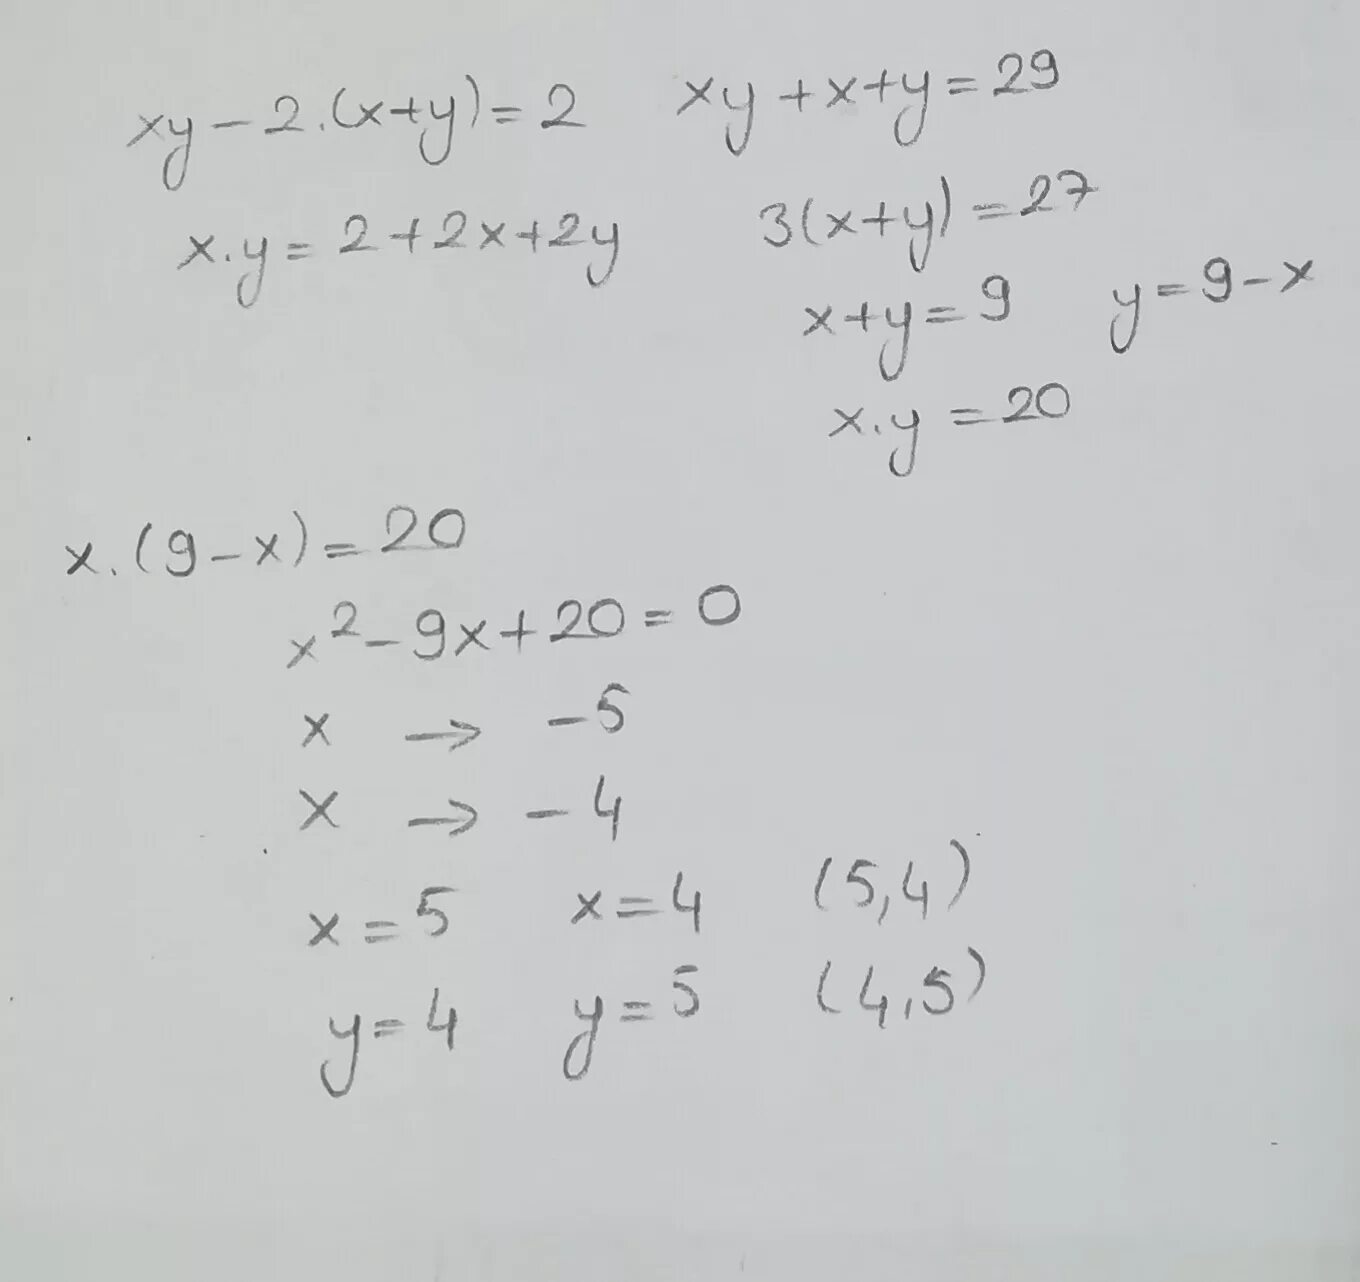 xy - 2.(x+y) = 2
x.y = 2+2x+2y
xy + x+y = 29
3(x+y) = 27
x+y = 9
y = 9-x
x.y = 20
x.(9-x) = 20
x² - 9x + 20 = 0
x → -5
x → -4
x = 5 x = 4 (5,4)
y = 4 y = 5 (4,5)